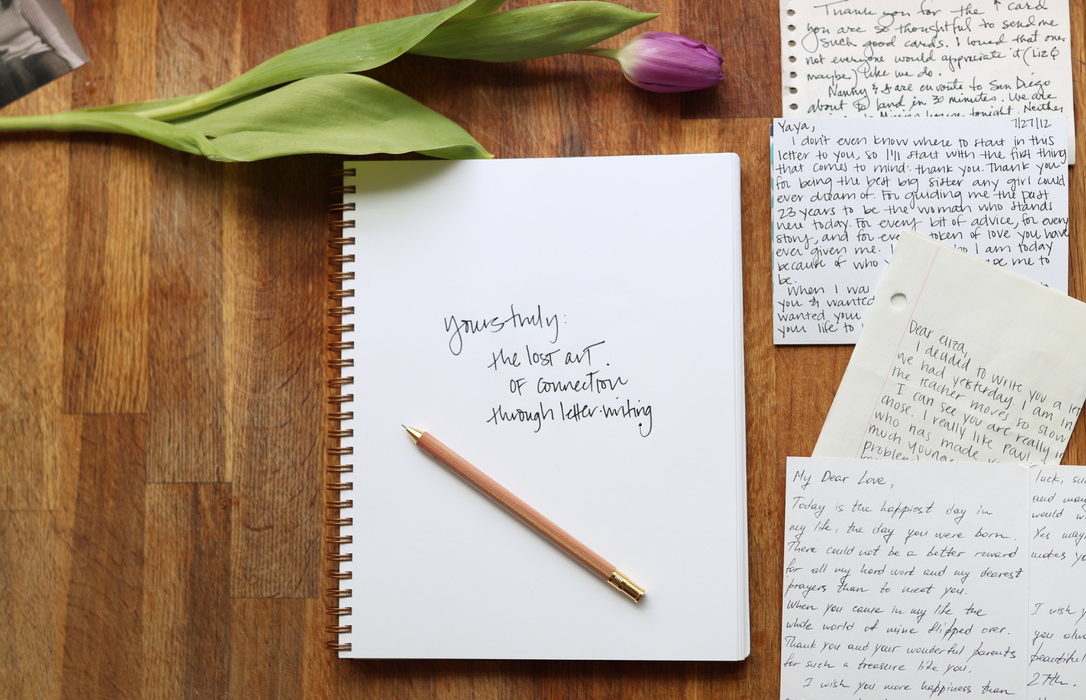 yours truly:
the lost art.
of connection
through letter-writing
Thank you for the card
you are so thoughtful to send me
such good cards. I loved that one
not everyone would appreciate it (Liz &
maybe) like we do.
Nanny & I are en route to San Diego
about to land in 30 minutes. We are
tonight. Neither
Yaya, 7/27/12
I don't even know where to start in this
letter to you, so I'll start with the first thing
that comes to mind: thank you. Thank you
for being the best big sister any girl could
ever dream of. For guiding me the past
23 years to be the woman who stands
here today. For every bit of advice, for every
story, and for every token of love you have
ever given me. I who I am today
because of who me to
be.
When I was
you & wanted
wanted your
your life to
Dear Eliza,
I decided to write you a
we had yesterday. I am in
the teacher moves so slow
I can see you are really in
chose. I really like Paul
who has made
much younger
My Dear Love,
Today is the happiest day in
my life, the day you were born.
There could not be a better reward
for all my hard work and my dearest
prayers than to meet you.
When you came in my life the
whole world of mine flipped over.
Thank you and your wonderful parents
for such a treasure like you.
I wish you more happiness than
luck,
and may
would
Yes
makes
I wish
you
beautiful
27th.